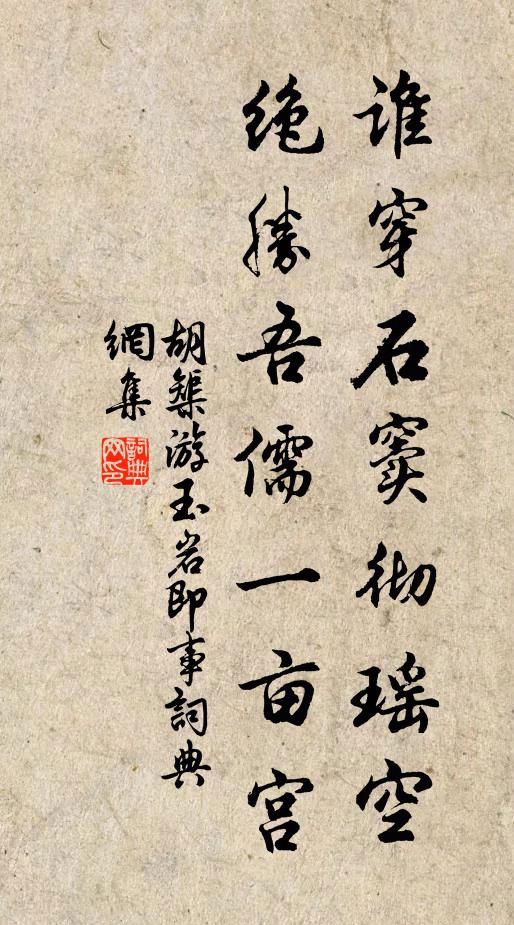 谁穿石窦彻瑶空
绝胜吾儒一亩宫
胡榘游玉岩即事詞典
網集
詞典网印